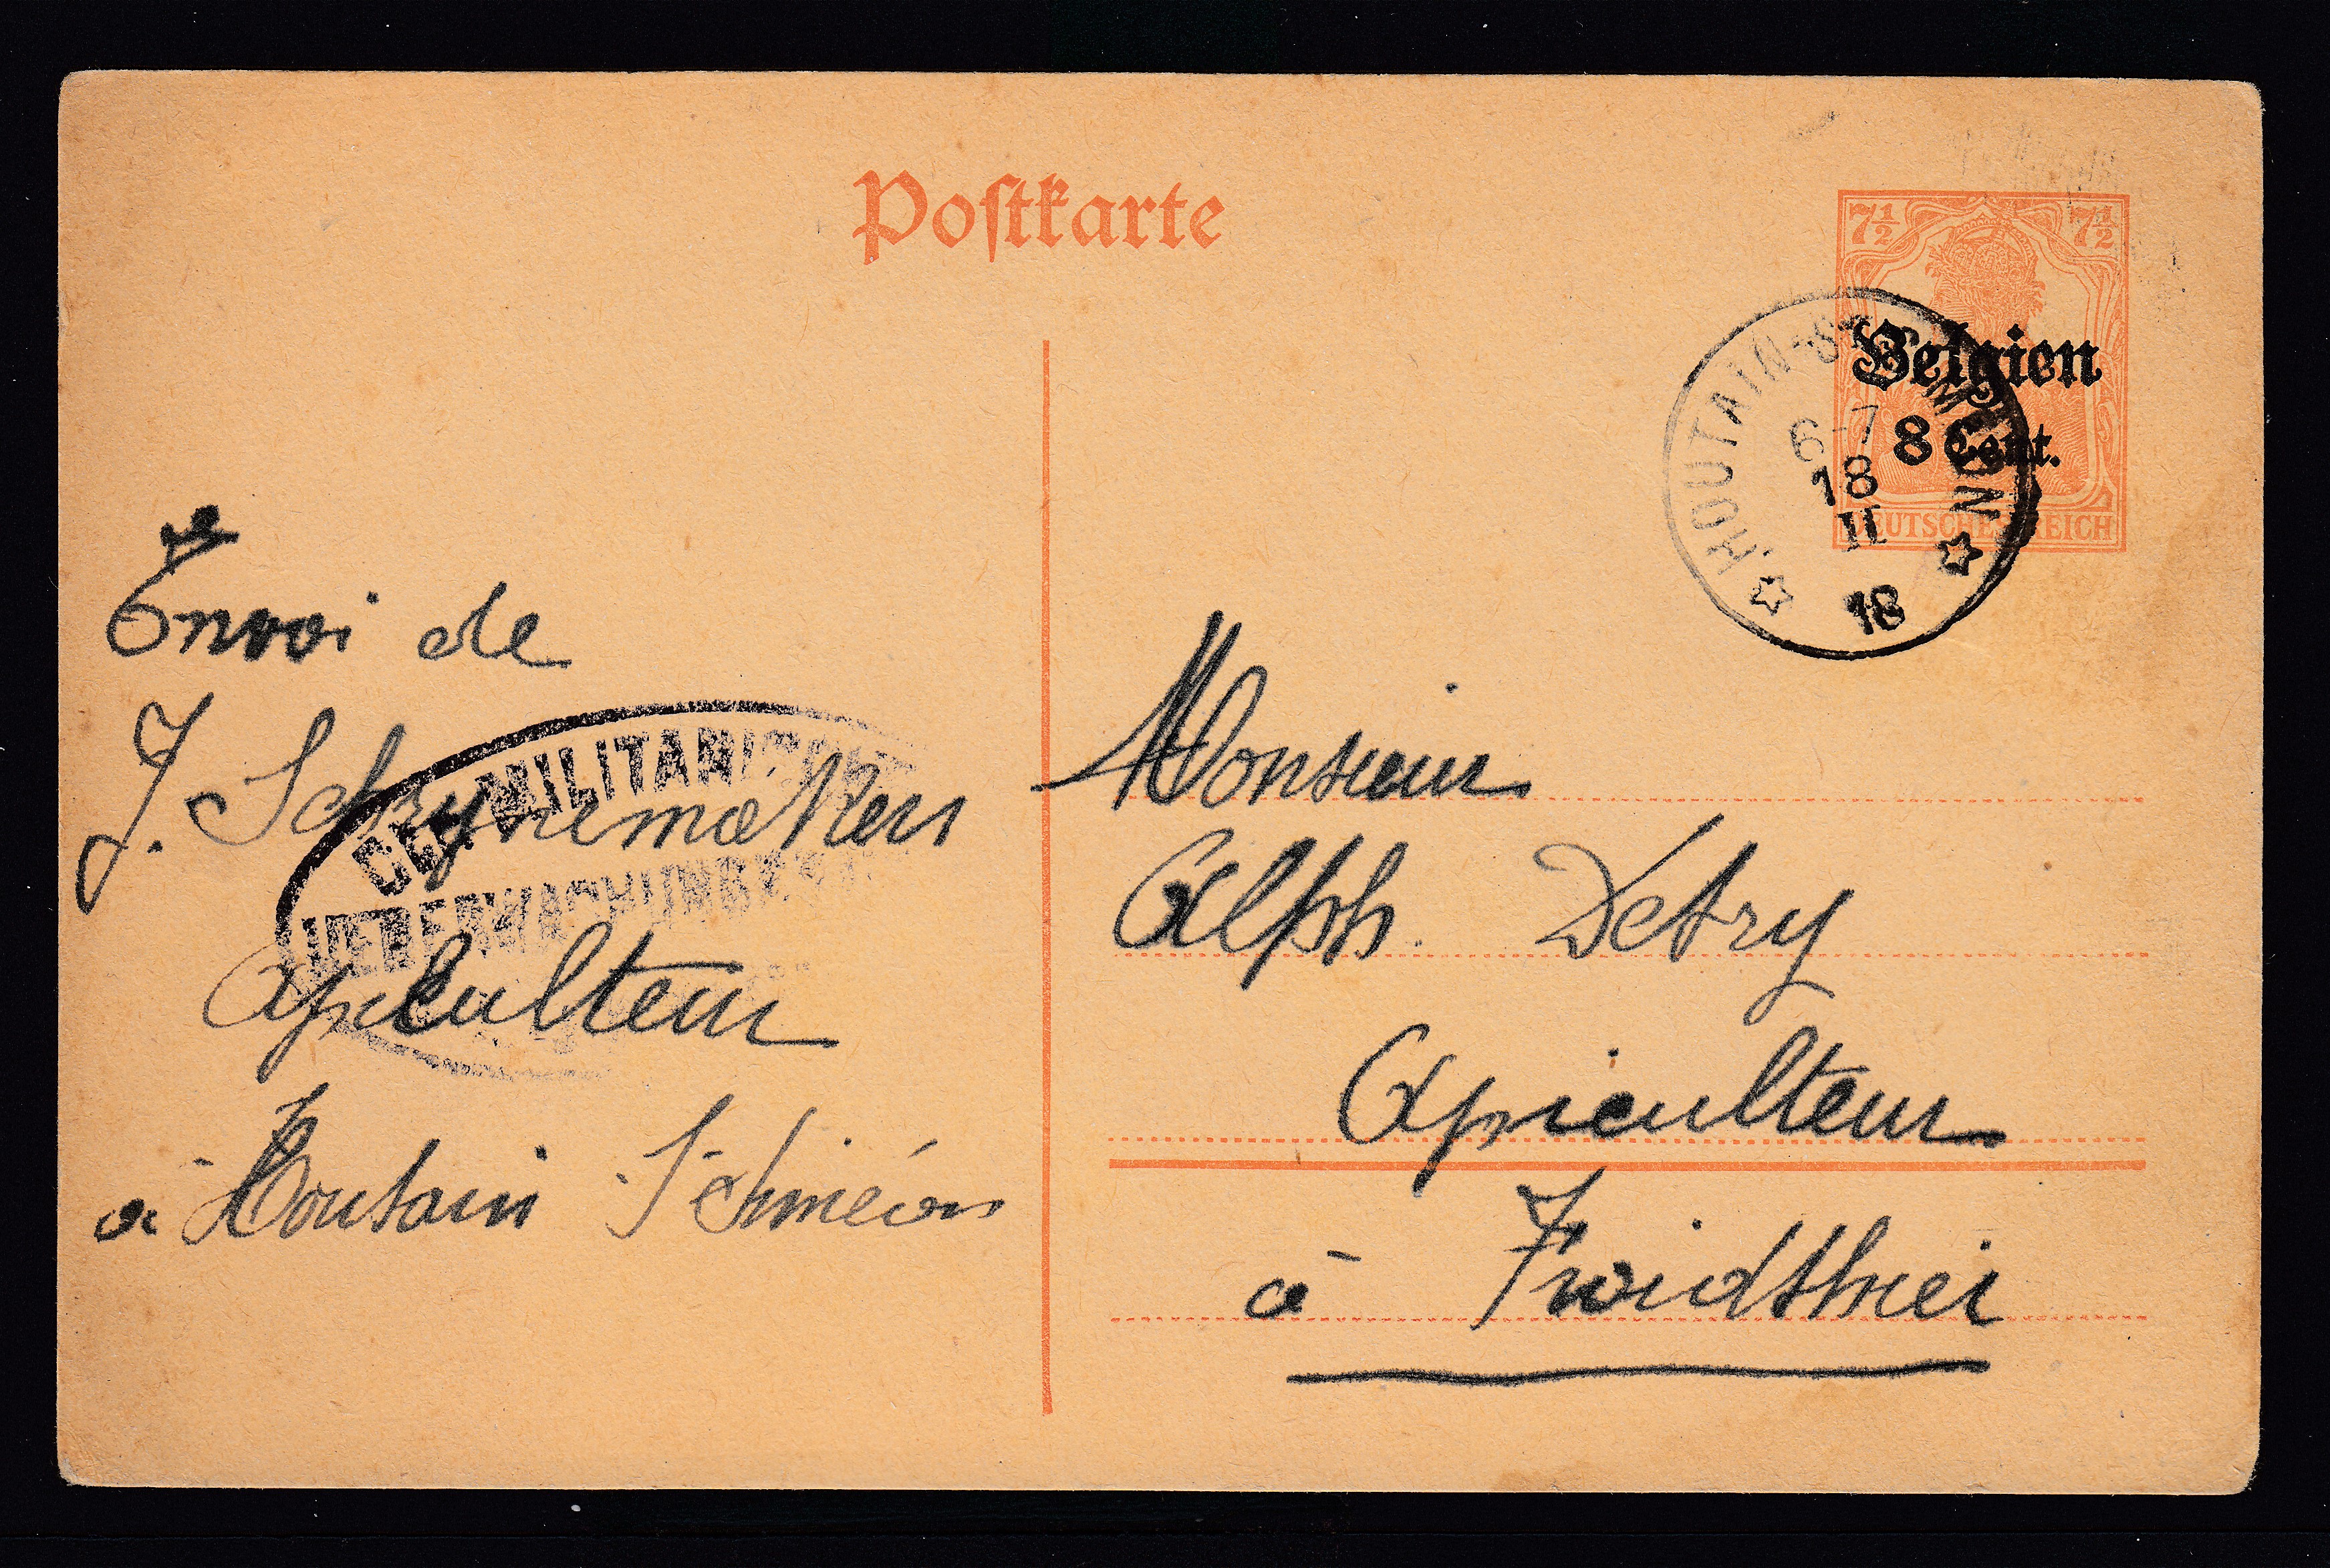 Postkarte
7½ 7½
Belgien
8 Cent.
DEUTSCHES REICH
HOUTAIN-ST SIMEON
6-7
18
II
18
Envoi de
J. Schrynemakers
Apiculteur
à Houtain S^t Siméon
MILITARISCHE
UEBERWACHUNGSSTELLE
Monsieur
Alph. Detry
Apiculteur
à